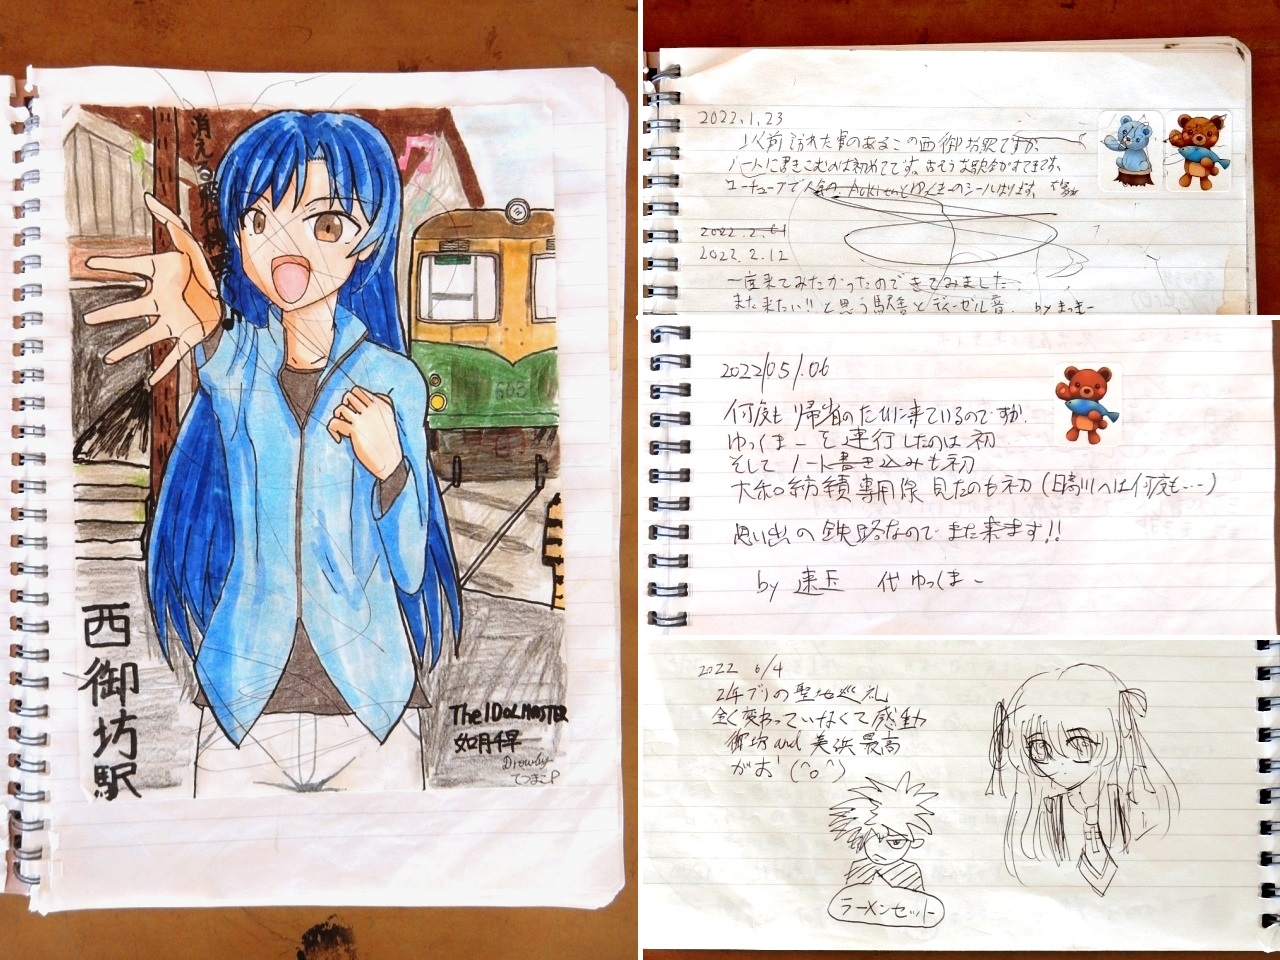 消える飛行機雲
663
西御坊駅
The IDOLM@STER
如月千早
Drow by
てつまこP
2022.1.23
以前訪れた事のあるこの西御坊駅ですが、
ノートに書きこむのは初めてです。
ユーチューブで人気の とゆっくまーのシールはります。
2022.2.
2022.2.12
一度来てみたかったのできてみました
また来たい!!と思う駅舎とディーゼル音. by まっきー
2022/05/06
何度も帰省のたびに来ているのですが、
ゆっくまーを連行したのは初
そしてノート書き込みも初
大和紡績専用線見たのも初(日高川へは何度も…)
思い出の鉄路なのでまた来ます!!
by 速玉 代ゆっくまー
2022 6/4
2年ブリの聖地巡礼
全く変わっていなくて感動
御坊and美浜最高
がお(^o^)
ラーメンセット